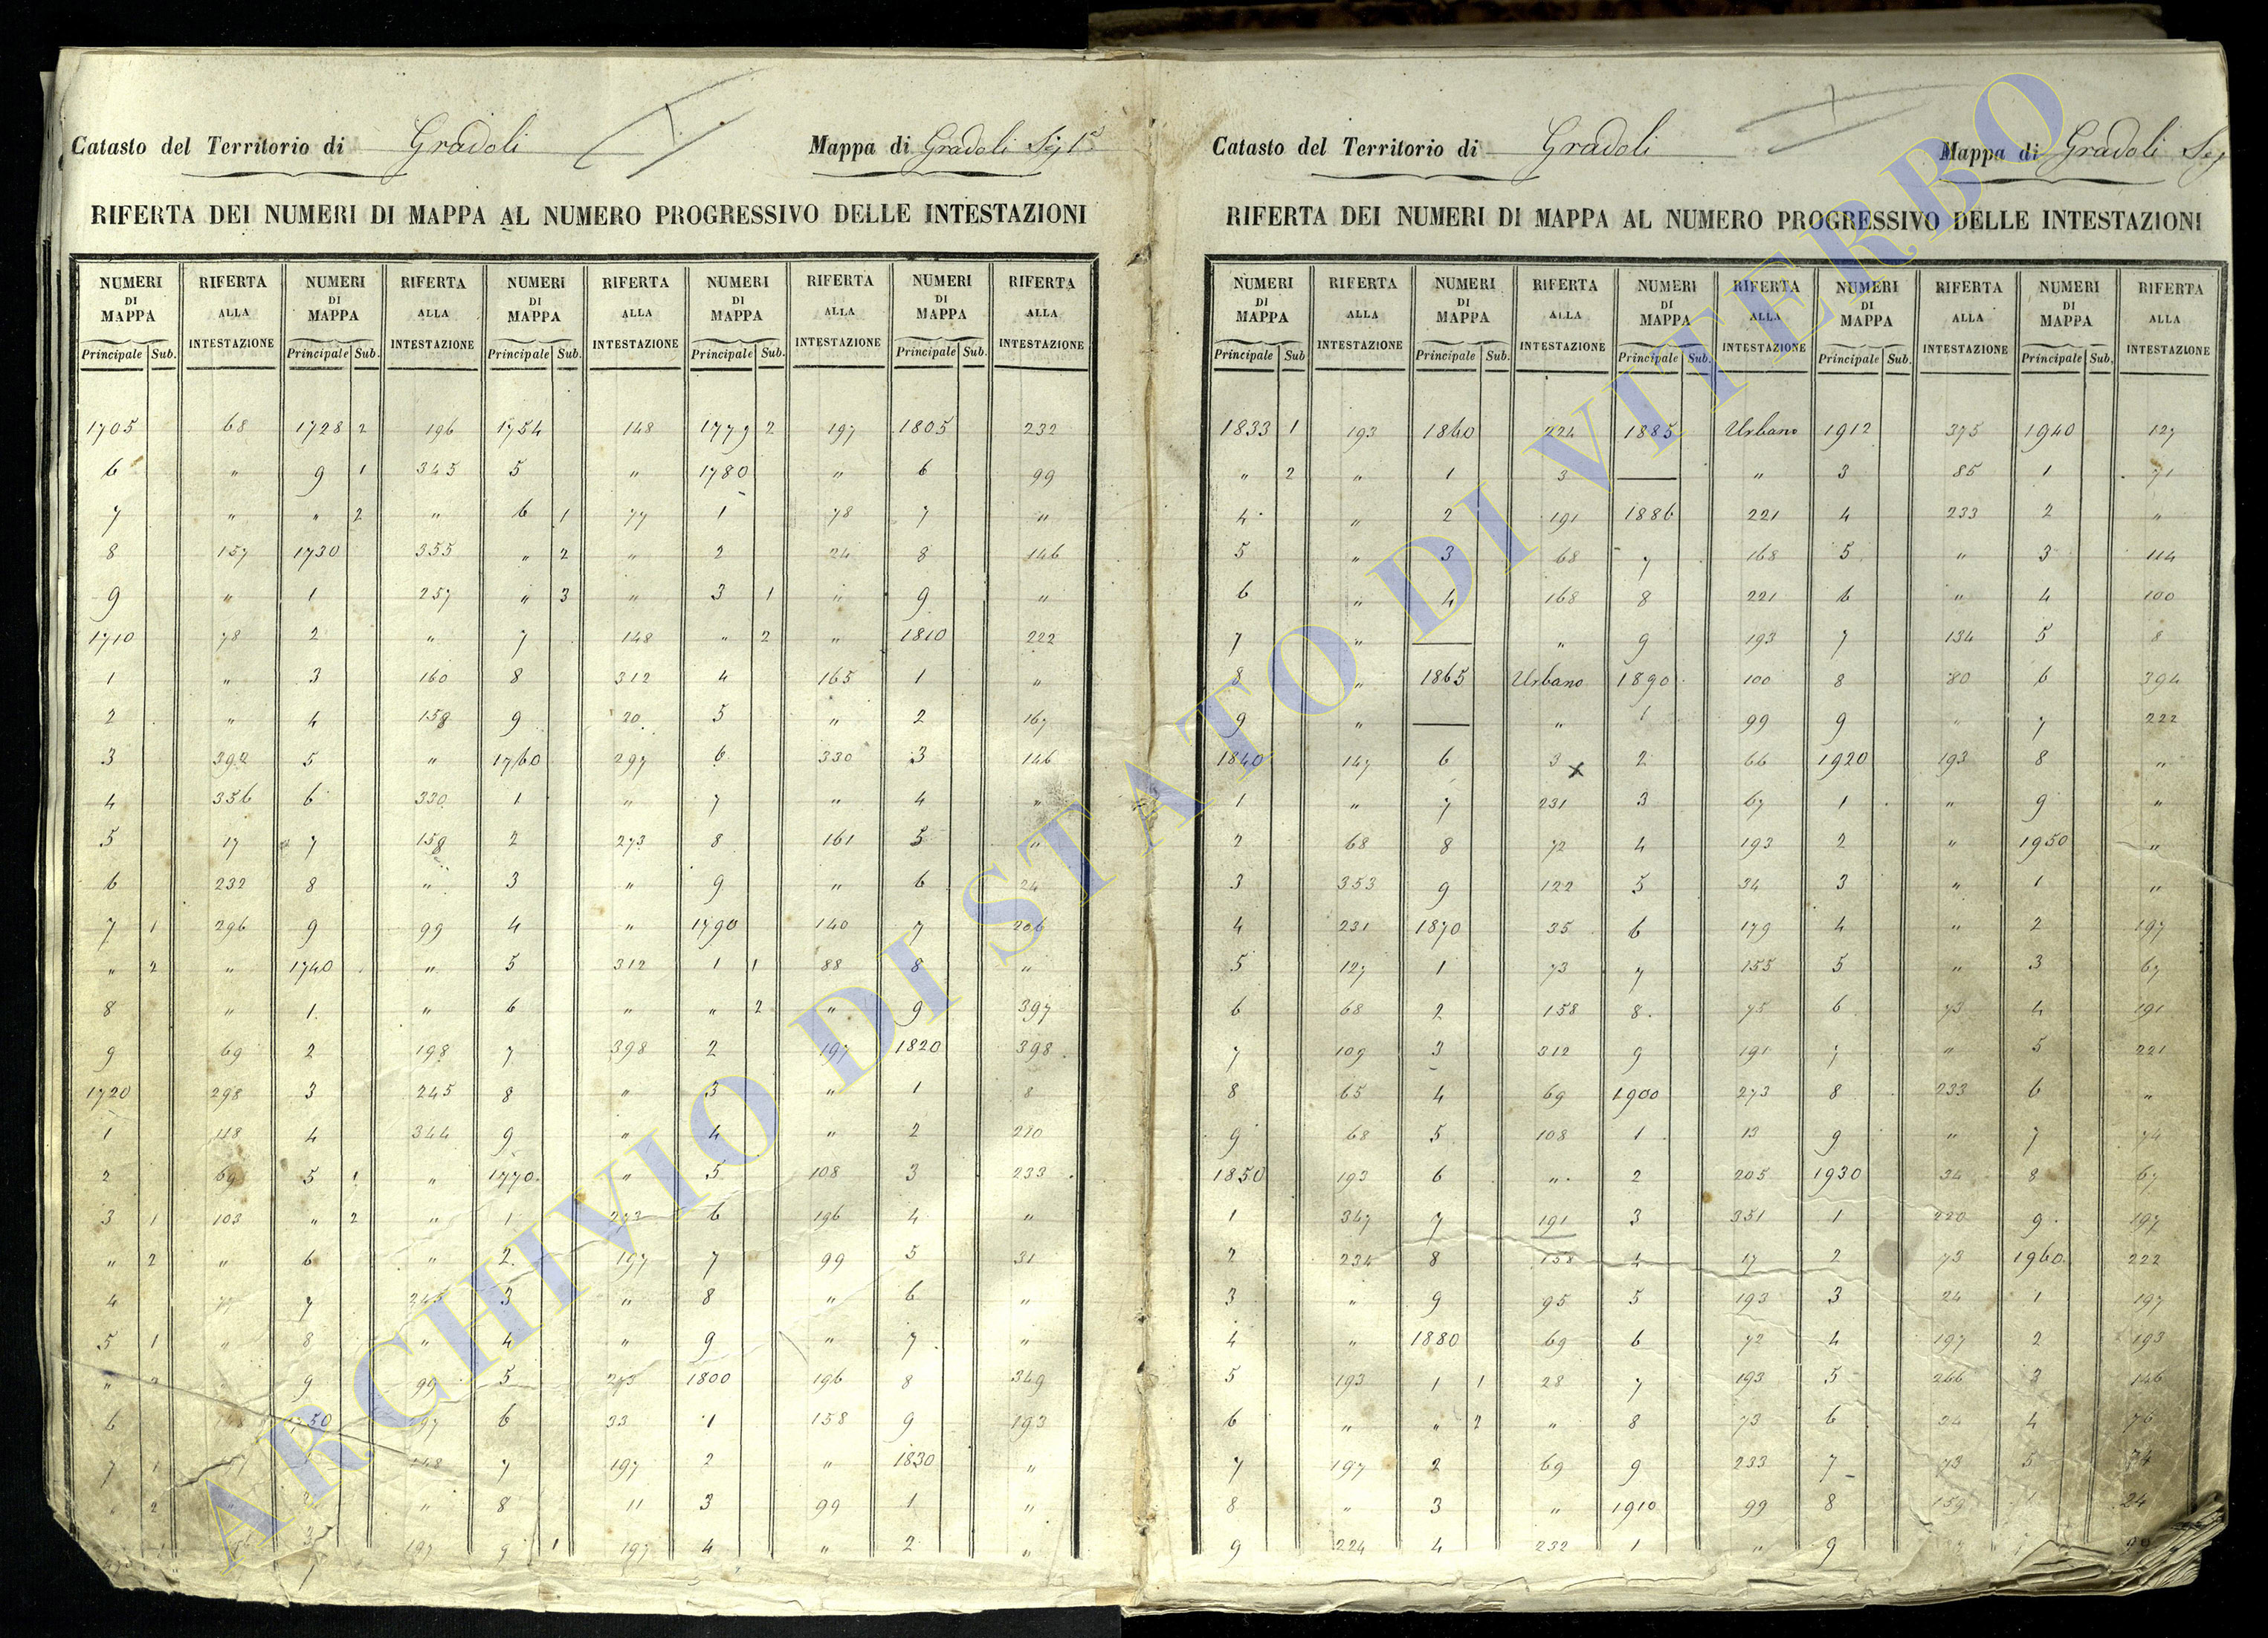 Catasto del Territorio di Gradoli I Mappa di Gradoli Sez 1ª
RIFERTA DEI NUMERI DI MAPPA AL NUMERO PROGRESSIVO DELLE INTESTAZIONI
NUMERI RIFERTA NUMERI RIFERTA NUMERI RIFERTA NUMERI RIFERTA NUMERI RIFERTA
DI ALLA DI ALLA DI ALLA DI ALLA DI ALLA
MAPPA INTESTAZIONE MAPPA INTESTAZIONE MAPPA INTESTAZIONE MAPPA INTESTAZIONE MAPPA INTESTAZIONE
Principale Sub. Principale Sub. Principale Sub. Principale Sub. Principale Sub.
1705 68 1728 2 196 1754 148 1779 2 197 1805 232
6 " 9 1 345 5 " 1780 " 6 99
7 " " 2 " 6 1 77 1 78 7 "
8 157 1730 355 " 2 " 2 24 8 146
9 " 1 257 " 3 " 3 1 " 9 "
1710 78 2 " 7 148 " 2 " 1810 222
1 " 3 160 8 312 4 165 1 "
2 " 4 158 9 20 5 " 2 167
3 392 5 " 1760 297 6 330 3 146
4 356 6 330 1 " 7 " 4 "
5 17 7 158 2 273 8 161 5 "
6 232 8 " 3 " 9 " 6 24
7 1 296 9 99 4 " 1790 140 7 206
" 2 " 1740 " 5 312 1 1 88 8 "
8 " 1 " 6 " " 2 " 9 397
9 69 2 198 7 398 2 197 1820 398
1720 298 3 245 8 " 3 " 1 8
1 148 4 344 9 " 4 " 2 220
2 69 5 1 " 1770 " 5 108 3 233
3 1 103 " 2 " 1 273 6 196 4 "
" 2 " 6 " 2 197 7 99 5 31
4 7 245 3 " 8 " 6 "
5 1 " 8 " 4 " 9 " 7 "
" 2 9 99 5 275 1800 196 8 349
6 148 1750 297 6 33 1 158 9 193
7 1 148 7 197 2 " 1830 "
2 " 2 " 8 11 3 99 1 "
3 197 9 1 197 4 " 2 "
Catasto del Territorio di Gradoli I Mappa di Gradoli Sez
RIFERTA DEI NUMERI DI MAPPA AL NUMERO PROGRESSIVO DELLE INTESTAZIONI
NUMERI RIFERTA NUMERI RIFERTA NUMERI RIFERTA NUMERI RIFERTA NUMERI RIFERTA
DI ALLA DI ALLA DI ALLA DI ALLA DI ALLA
MAPPA INTESTAZIONE MAPPA INTESTAZIONE MAPPA INTESTAZIONE MAPPA INTESTAZIONE MAPPA INTESTAZIONE
Principale Sub Principale Sub. Principale Sub. Principale Sub. Principale Sub.
1833 1 193 1860 224 1885 Urbano 1912 375 1940 127
" 2 " 1 3 — " 3 85 1 71
4 " 2 191 1886 221 4 233 2 "
5 " 3 68 7 168 5 " 3 114
6 " 4 168 8 221 6 " 4 100
7 " — " 9 193 7 134 5 8
8 " 1865 Urbano 1890 100 8 80 6 394
9 " — " 1 99 9 " 7 222
1840 147 6 3 x 2 66 1920 193 8 "
1 " 7 231 3 67 1 " 9 "
2 68 8 72 4 193 2 " 1950 "
3 353 9 122 5 34 3 " 1 "
4 231 1870 35 6 179 4 " 2 197
5 127 1 73 7 155 5 " 3 67
6 68 2 158 8 75 6 73 4 191
7 109 3 312 9 191 7 " 5 221
8 65 4 69 1900 273 8 233 6 "
9 68 5 108 1 13 9 " 7 74
1850 193 6 " 2 205 1930 34 8 67
1 347 7 191 3 351 1 220 9 197
2 234 8 158 4 17 2 73 1960 222
3 " 9 95 5 193 3 24 1 197
4 " 1880 69 6 72 4 197 2 193
5 193 1 1 28 7 193 5 266 3 146
6 " " 2 " 8 73 6 24 4 76
7 197 2 69 9 233 7 73 5 74
8 " 3 " 1910 99 8 159 24
9 224 4 232 1 " 9
ARCHIVIO DI STATO DI VITERBO